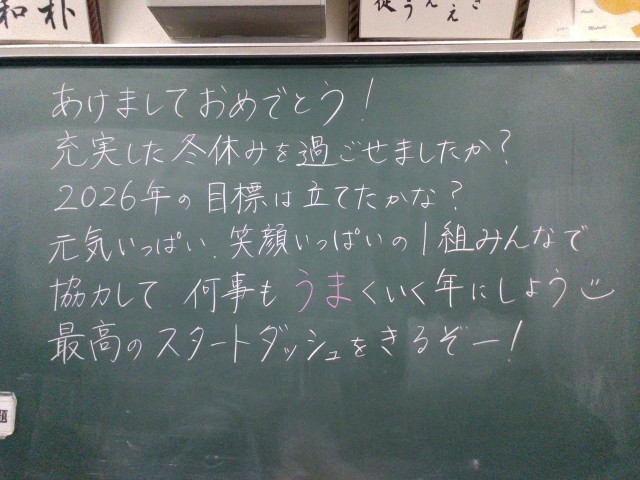 和朴
従うええさ
あけましておめでとう!
充実した冬休みを過ごせましたか?
2026年の目標は立てたかな?
元気いっぱい、笑顔いっぱいの1組みんなで
協力して 何事もうまくいく年にしよう
最高のスタートダッシュをきるぞー!
題